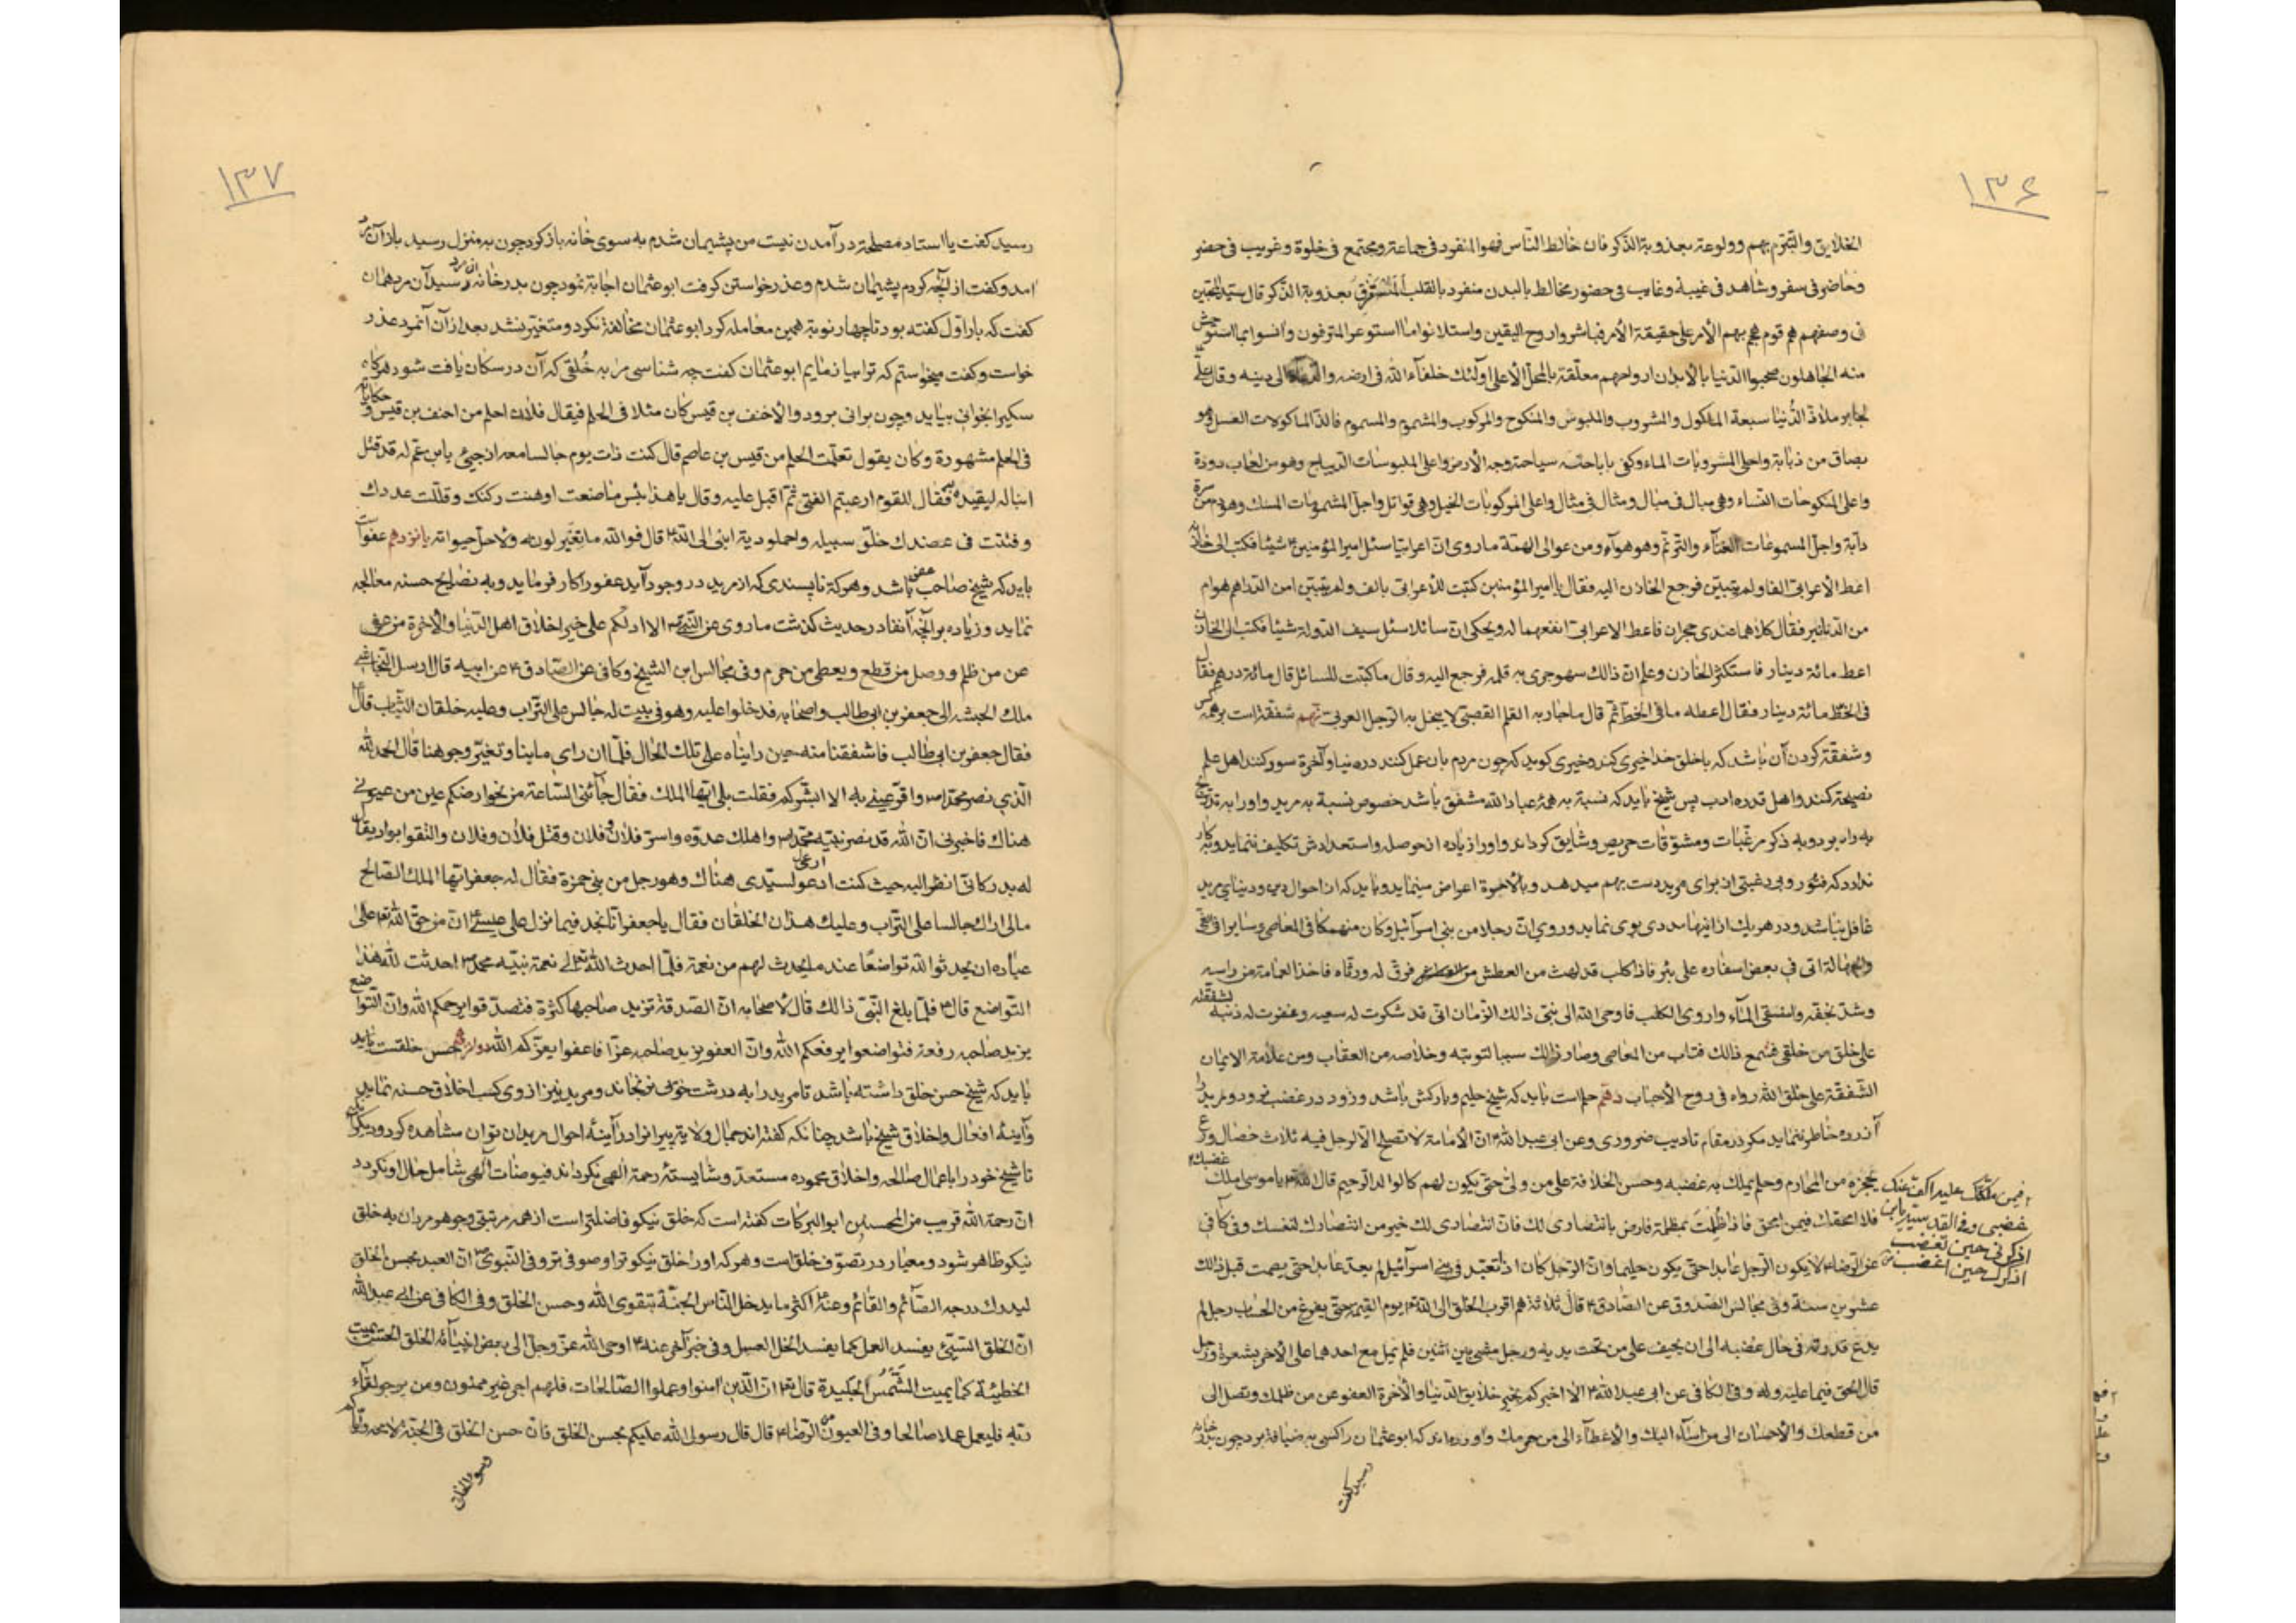 ۱۳۶
الخلایق والتبرّم بهم وولوعته بعذوبة الذکر فان خالط الناس فهو المنفرد فی جماعة ومجتمع فی خلوة وغریب فی حضر
وحاضر فی سفر وشاهد فی غیبة وغایب فی حضور مخالط بالبدن منفرد بالقلب المستغرق بعذوبة الذکر قال سید المحبین
فی وصفهم هم قوم هجم بهم الأمر علی حقیقة الأمر فباشروا روح الیقین واستلانوا ما استوعر المترفون وانسوا بما استوحش
منه الجاهلون صحبوا الدنیا بالأبدان ارواحهم معلّقة بالمحل الأعلی اولئک خلفآء الله فی ارضه والدعاة الی دینه وقال علی
لجابر ملاذ الدنیا سبعة الماکول والمشروب والملبوس والمنکوح والمرکوب والمشموم والمسموم فالذ الماکولات العسل وهو
بصاق من ذبابة واحلی المشروبات الماء وکفی باباحته سیاحته وجه الأرض واعلی الملبوسات الدیباج وهو من لعاب دودة
واعلی المنکوحات النساء وهی مبال فی مبال ومثال فی مثال واعلی المرکوبات الخیل وهی قواتل واجل المشمومات المسک وهو دم من سرة
دابة واجل المسموعات الغنآء والترنم وهو هوآء ومن عوالی الهمة ما روی ان اعرابیا سئل امیر المؤمنین ۴ شیئا فکتب الی خازنه
اعط الأعرابی الفا ولم یتبین فرجع الخازن الیه فقال یا امیر المؤمنین کتبت للأعرابی بالف ولم یتبین امن الدراهم هو ام
من الدنانیر فقال کلاهما عندی حجران فاعط الاعرابی انفعهما له ویحکی ان سائلا سئل سیف الدولة شیئا فکتب الی الخازن
اعط مائة دینار فاستکثر الخازن وعلم ان ذالک سهو جری به قلمه فرجع الیه وقال ما کتبت للسائل قال مائة درهم فقال
فی الخط مائة دینار فقال اعطه ما فی الخط ثم قال ما جاد به القلم القصبی لا یبخل به الرجل العربی نهم شفقة است بر همه کس
وشفقة کردن آن باشد که با خلق خدا خیری کند وخیری کوید که چون مردم بان عمل کنند در دنیا وآخرة سود کنند اهل علم
نصیحة کنند واهل قدرة ادب پس شیخ باید که نسبة به همۀ عباد الله مشفق باشد خصوص نسبة به مرید واورا به تدریج
به راه برد وبه ذکر مرغّبات ومشوّقات حریص وشایق کرداند واورا زیاده از حوصله واستعدادش تکلیف ننماید وبه کار
ندارد که فتور وبی رغبتی از برای مرید دست بهم میدهد وبالأخرة اعراض مینماید وباید که از احوال دین ودنیای مرید
غافل نباشد ودر هریک از اینها مددی بوی نماید وروی ان رجلا من بنی اسرآئیل وکان منهمکا فی المعاصی وسایرا فی الغی
والجهالة اتی فی بعض اسفاره علی بئر فاذا کلب قد لهث من العطش فرق له ورثاه فاخذ العمامة من راسه
وشد بخفه واستقی المآء واروی الکلب فاوحی الله الی نبی ذالک الزمان انی قد شکرت له سعیه وغفرت له ذنبه لشفقته
علی خلق من خلقی فسمع ذالک فتاب من المعاصی وصار ذالک سببا لتوبته وخلاصه من العقاب ومن علامة الایمان
الشفقة علی خلق الله رواه فی روح الأحباب دهم حلم است باید که شیخ حلیم وبارکش باشد وزود در غضب نرود ومرید را
آزرده خاطر ننماید مکر در مقام تادیب ضروری وعن ابی عبدالله ۴ ان الأمامة لا تصلح الا لرجل فیه ثلاث خصال ورع
یحجزه من المحارم وحلم یملک به غضبه وحسن الخلافة علی من ولی حتی یکون لهم کالوالد الرحیم قال الله یا موسی املک غضبک
فلا امحقک فیمن امحق فاذا ظلمت بمظلمة فارض بانتصاری لک فان انتصاری لک خیر من انتصارک لنفسک وفی کافی
عن الرضا ۴ لا یکون الرجل عابدا حتی یکون حلیما وان الرجل کان اذا تعبد فی بنی اسرآئیل لم یعد عابدا حتی یصمت قبل ذالک
عشر سنة وفی مجالس الصدوق عن الصادق ۴ قال ثلاثة هم اقرب الخلق الی الله یوم القیمة حتی یفرغ من الحساب رجل لم
یدع قدرته فی حال غضبه الی ان یحیف علی من تحت یدیه ورجل مشی بین اثنین فلم یمل مع احدهما علی الآخر بشعرة ورجل
قال الحق فیما علیه وله وفی الکافی عن ابی عبدالله ۴ الا اخبرکم بخیر خلایق الدنیا والأخرة العفو عن من ظلمک وتصل الی
من قطعک والأحسان الی من اسآء الیک والأعطآء الی من حرمک واورده اند که ابو عثمان را کسی به ضیافة برد چون بدر خانه
رسید کفت
فیمن ملکتک علیه اکف عنک
غضبی وفی القدسیة یابن
اذکرنی حین تغضب
اذکرک حین اغضب
۱۳۷
رسید کفت یا استاد مصلحة در آمدن نیست من پشیمان شدم به سوی خانه باز کرد چون به منزل رسید باز آن مرد
امد وکفت از آنچه کردم پشیمان شدم وعذر خواستن کرفت ابو عثمان اجابة نمود چون بدر خانه آن مرد رسید آن مرد همان
کفت که بار اول کفته بود تا چهار نوبة همین معامله کرد ابو عثمان مخالفة نکرد ومتغیر نشد بعد از آن آنمرد عذر
خواست وکفت میخواستم که ترا بیازمایم ابو عثمان کفت چه شناسی مرا به خلقی که آن در سکان یافت شود هرکاه
سکیرا بخوانی بیاید وچون برانی برود والأخنف بن قیس کان مثلا فی الحلم فیقال فلان احلم من احنف بن قیس وحکایاته
فی الحلم مشهورة وکان یقول تعلمت الحلم من قیس بن عاصم قال کنت ذات یوم جالسا معه اذ جیئ بابن عم له قد قتل
ابنا له لیقیده فقال للقوم ارعبتم الفتی ثم اقبل علیه وقال یا هذا بئس ما صنعت اوهنت رکنک وقللت عددک
وفتتت فی عضدک خلو سبیله واحملو دیة ابنی الی قال فوالله ما تغیر لونه ولا حل حبواته پانزدهم عفو است
باید که شیخ صاحب عفو باشد وهرکه ناپسندی که از مرید در وجود آید عفو را کار فرماید وبه نصایح حسنه معالجه
نماید وزیاده بر آنچه آنفا در حدیث کذشت ما روی عن النبی ص الا ادلکم علی خیر اخلاق اهل الدنیا والأخرة من عفی
عن من ظلم ووصل من قطع ویعطی من حرم وفی مجالس ابن الشیخ وکافی عن الصادق ۴ عن ابیه قال ارسل النجاشی
ملک الحبشه الی جعفر بن ابی طالب واصحابه فدخلوا علیه وهو فی بیت له جالس علی التراب وعلیه خلقان الثیاب قال
فقال جعفر بن ابی طالب فاشفقنا منه حین رایناه علی تلک الحال فلما ان رای ما بنا وتغیر وجوهنا قال الحمد لله
الذی نصر محمدا ص واقر عینی به الا ابشرکم فقلت بلی ایها الملک فقال جآئنی الساعة من نحو ارضکم عین من عیونی
هناک فاخبرنی ان الله قد نصر نبیه محمد ص واهلک عدوه واسر فلان وفلان وقتل فلان وفلان والتقوا بواد یقال
له بدر کانی انظر الیه حیث کنت ارعی لسیدی هناک وهو رجل من بنی ضمرة فقال له جعفر ایها الملک الصالح
مالی اراک جالسا علی التراب وعلیک هذان الخلقان فقال یا جعفر انا نجد فیما نزل علی عیسی ۴ ان من حق الله علی
عباده ان یحدثوا لله تواضعا عند ما یحدث لهم من نعمة فلما احدث الله لی نعمة نبیه محمد ص احدثت لله هذا
التواضع قال ۴ فلما بلغ النبی ذالک قال لأصحابه ان الصدقة تزید صاحبها کثرة فتصدقوا یرحمکم الله وان التواضع
یزید صاحبه رفعة فتواضعوا یرفعکم الله وان العفو یزید صاحبه عزا فاعفوا یعزکم الله دوازدهم حسن خلقست باید
باید که شیخ حسن خلق داشته باشد تا مرید را به درشت خوئی نرنجاند ومرید نیز از وی کسب اخلاق حسنه نماید
وآینۀ افعال واخلاق شیخ باشد چنانکه کفته اند جمال ولایة پیرانرا در آینۀ احوال مریدان توان مشاهده کرد
تا شیخ خود را باعمال صالحه واخلاق محموده مستعد وشایستۀ رحمة الهی نکرداند فیوضات الهی شامل حال او نکردد
ان رحمة الله قریب من المحسنین ابو البرکات کفته است که خلق نیکو فاضلتر است از همه مرتبتی وجوهر مردان به خلق
نیکو ظاهر شود ومعیار در تصوف خلق است وهرکه اورا خلق نیکوتر او صوفی تر وفی النبوی ان العبد بحسن الخلق
لیدرک درجه الصآئم والقائم وعنه اکثر ما یدخل الناس الجنة بتقوی الله وحسن الخلق وفی الکافی عن ابی عبدالله
ان الخلق السیئ یفسد العمل کما یفسد الخل العسل وفی خبر آخر عنه ۴ اوحی الله عز وجل الی بعض انبیآئه الخلق الحسن یمیت
الخطیئة کما یمیت الشمس الجلیدة قال ان الذین امنوا وعملوا الصالحات فلهم اجر غیر ممنون ومن یرجو لقآء
ربه فلیعمل عملا صالحا وفی العیون عن الرضا ۴ قال قال رسول الله علیکم بحسن الخلق فان حسن الخلق فی الجنة لا محه وایاکم
وسوء الخلق